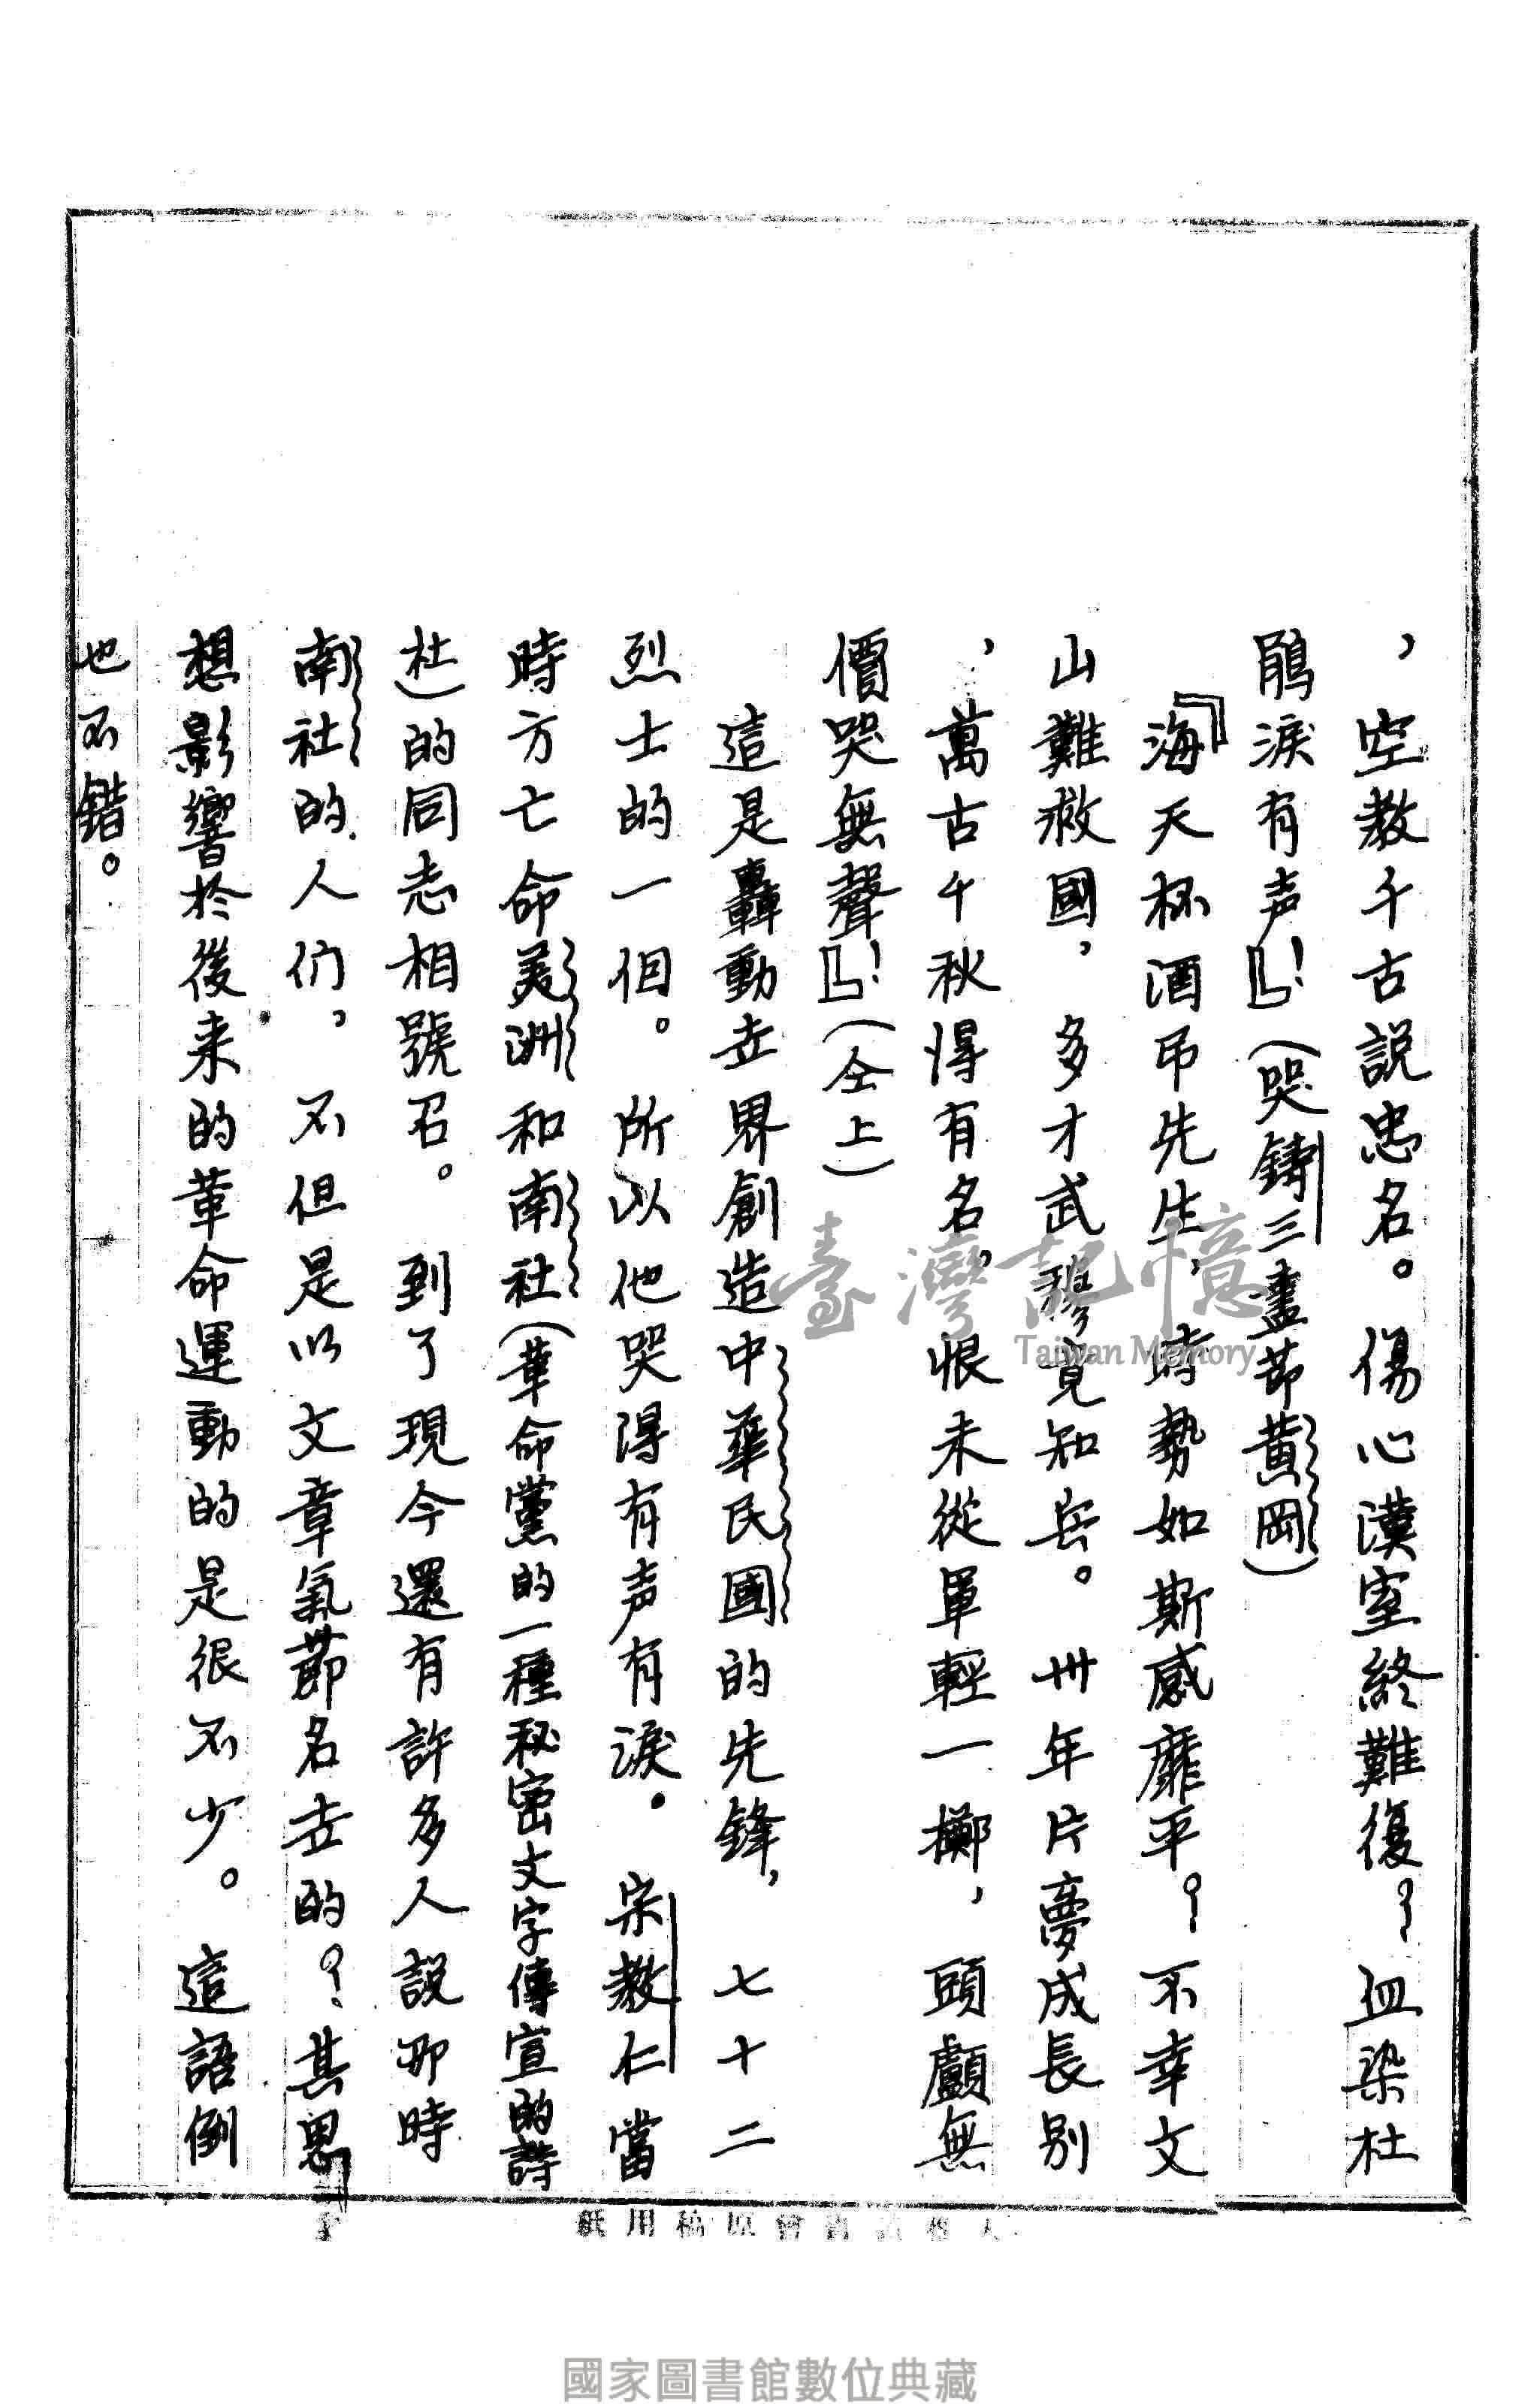 ，空教千古説忠名。傷心漢室終難復？血染杜
鵑淚有声！』（哭鑄三盡节黄岡）
『海天杯酒吊先生，時勢如斯感靡平？不幸文
山難救國，多才武穆竟知兵。卅年片夢成長別
，萬古千秋得有名，恨未從軍輕一擲，頭顱無
價哭無聲！』（仝上）
這是轟動世界創造中華民國的先鋒，七十二
烈士的一個。所以他哭得有声有淚。宋教仁當
時方亡命美洲和南社（革命黨的一種秘密文字傳宣的詩
社）的同志相號召。到了現今還有許多人說那時
南社的人们，不但是以文章氣節名世的？其思
想影響於後来的革命運動的是很不少。這語倒
也不錯。
臺灣記憶
Taiwan Memory
紙用稿原會
國家圖書館數位典藏